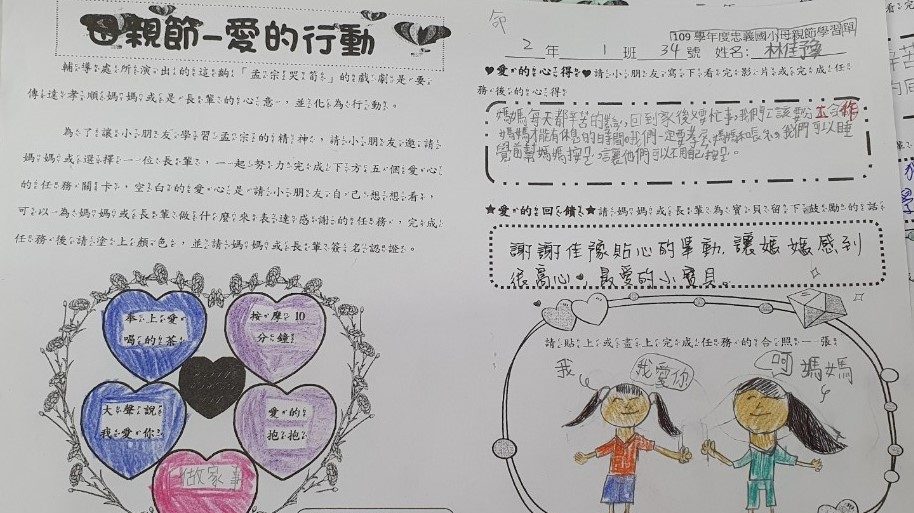 母親節-愛的行動
輔導處所演出的這齣「孟宗哭筍」的戲劇是要
傳達孝順媽媽或是長輩的心意，並化為行動。
為了讓小朋友學習孟宗的精神，請小朋友邀請
媽媽或選擇一位長輩，一起努力完成下方五個愛心
的任務關卡，空白的愛心是請小朋友自己想想看，
可以為媽媽或長輩做什麼來表達感謝的任務，完成
任務後請塗上顏色，並請媽媽或長輩簽名認證。
奉上愛
喝的茶
按摩10
分鐘
大聲說
我愛你
愛的
抱抱
做家事
109學年度忠義國小母親節學習單
2年1班34號 姓名：林佳豫
♥愛的心得♥請小朋友寫下看完影片或完成任
務後的心得
媽媽每天都辛苦的
回到家後又要忙家事,我們應該要分工合作
媽媽才能有休息的時間。我們一定要孝
我們可以睡
覺前幫媽媽按
★愛的回饋★請媽媽或長輩為寶貝留下鼓勵的話
謝謝佳豫貼心的舉動,讓媽媽感到
很高心，最愛的小寶貝。
請貼上或畫上完成任務的合照一張
我
我愛你
呵
媽媽